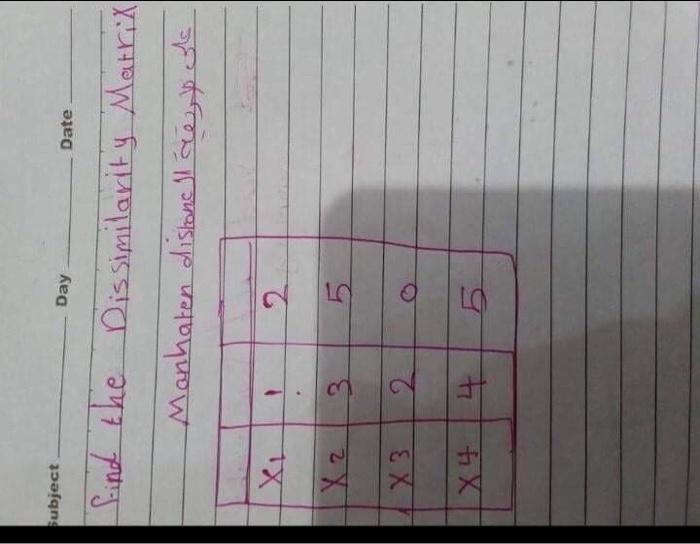 Subject Day Date
Find the Dissimilarity Matrix
Manhaten distance ال
X1 1 2
X2 3 5
X3 2 0
X4 4 5